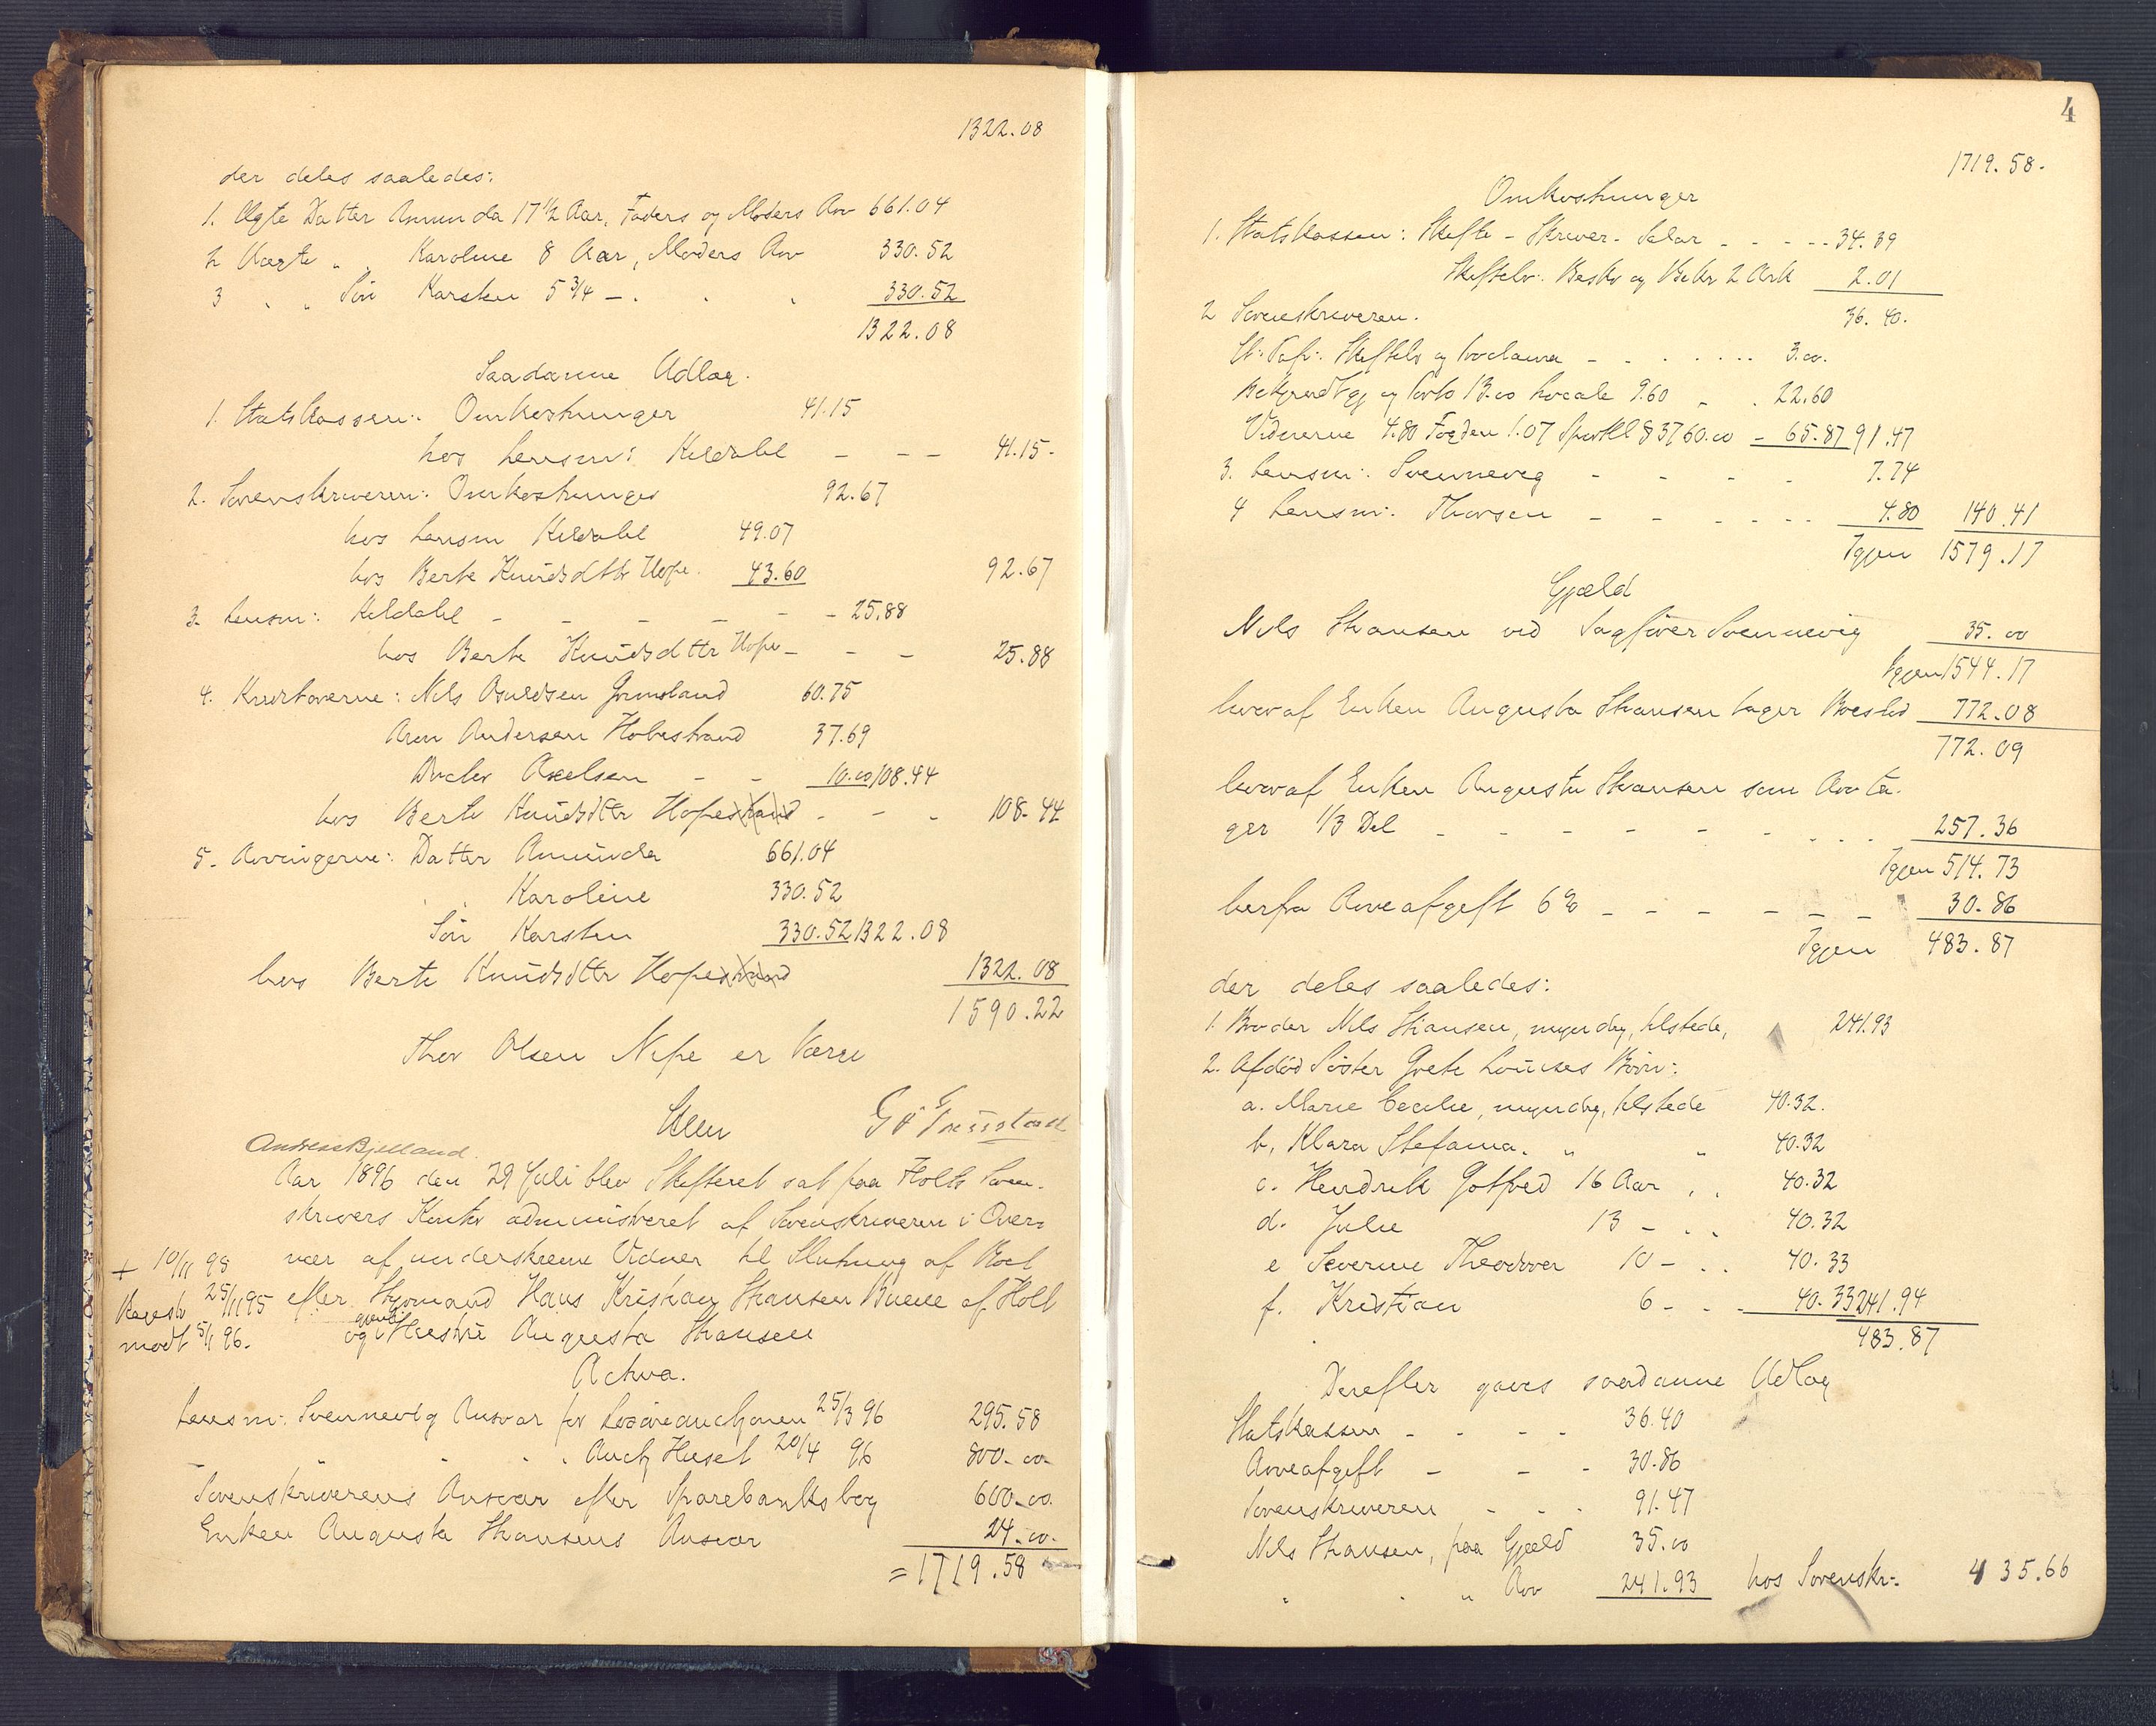 1322.08
der deles saaledes:
1. Ægte Datter Amunda 17 1/2 Aar, Faders og Moders Arv 661.04
2 Uægte " . Karoline 8 Aar, Moders Arv 330.52
3 . " Søn Karsten 5 3/4 - . . . 330.52
1322.08
Saadanne Udlæg.
1. Statskassen: Omkostninger 41.15
hos Lensm: Kildahl - - - 41.15-
2. Sorenskriveren: Omkostninger 92.67
hos Lensm Kildahl 49.07
hos Berte Knudsdttr Hope. 43.60 92.67
3. Lensm: Kildahl - - - - - - 25.88
hos Berte Knudsdttr Hope - - - 25.88
4. Kreditorerne: Nils Grimsland 60.75
Aren Andersen Holmestrand 37.69
Axelsen - - 10.00 108.44
hos Berte Knudsdttr Hopestrand - - - 108.44
5. Arvingerne: Datter Amunda 661.04
. . Karoline 330.52
Søn Karsten 330.52 1322.08
hos Berte Knudsdttr Hopestrand 1322.08
1590.22
Thor Olsen Nipe er Værge
Andreas Bjelland.
Aar 1896 den 29 Juli blev Skifteret sat paa Holts Soren-
skrivers Kontor administreret af Sorenskriveren i Over-
vær af underskrevne Vidner til Slutning af Boet
+ 10/11 95
efter Styrmand Hans Kristian Stiansen af Holt
25/11 95
og Hustru Augusta Stiansen
modt 5/1 96.
Activa.
Lensm: Svennevig Ansvar for Løsøreauctionen 25/3 96 295.58
" . . . Auctj Huset 20/4 96 800-00-
Sorenskriverens Ansvar efter Sparebanksbog 600-00.
Enken Augusta Stiansens Ansvar 24-00.
= 1719.58
4
1719.58.
Omkostninger
1. Statskassen: Skifte-Skriver-Salær - - - - 34.39
Skiftebr: Beskr og Bekr 2 Ark 2.01
2 Sorenskriveren. 36.40.
St: Pap: Skiftebr og Proclama - - . . . . . . 3.00.
Bekjendtgj og Porto 13.00 Locale 9.60 " . 22.60
Vidnerne 4.80 Fogden 1.07 8 3760.00 - 65.87 91.47
3. Lensm: Svennevig - - - - 7.74
4 Lensm: Thorsen - - - . . . 4.80 140.41
Igjen 1579.17
Gjæld
Nils Stiansen ved Sagfører Svennevig 35.00
Igjen 1544.17
hvoraf Enken Augusta Stiansen tager Boeslod 772.08
772.09
hvoraf Enken Augusta Stiansen som Arv ta-
ger 1/3 Del - - - - - - . . . 257.36
Igjen 514.73
herfra Arveafgift 6% - - - - - - 30.86
Igjen 483.87
der deles saaledes:
1. Broder Nils Stiansen, myndig, tilstede, 241.93
2. Afdød Søster Grete Louises Børn:
a. Marie Cecilie, myndig, tilstede 40.32.
b, Klara Stefania. " " 40.32
c. Hendrik Gotfred 16 Aar . . 40.32
d. Julie 13 - . . 40.32
e Severine Theodora 10 - . . 40.33
f. Kristian 6 - . - 40.33 241.94
483.87
Derefter gaves saadanne Udlæg
Statskassen - - - - 36.40
Arveafgift - - - 30.86
Sorenskriveren - - - 91.47
Nils Stiansen, paa Gjæld 35.00
" . " Arv 241.93 hos Sorenskr: 435.66